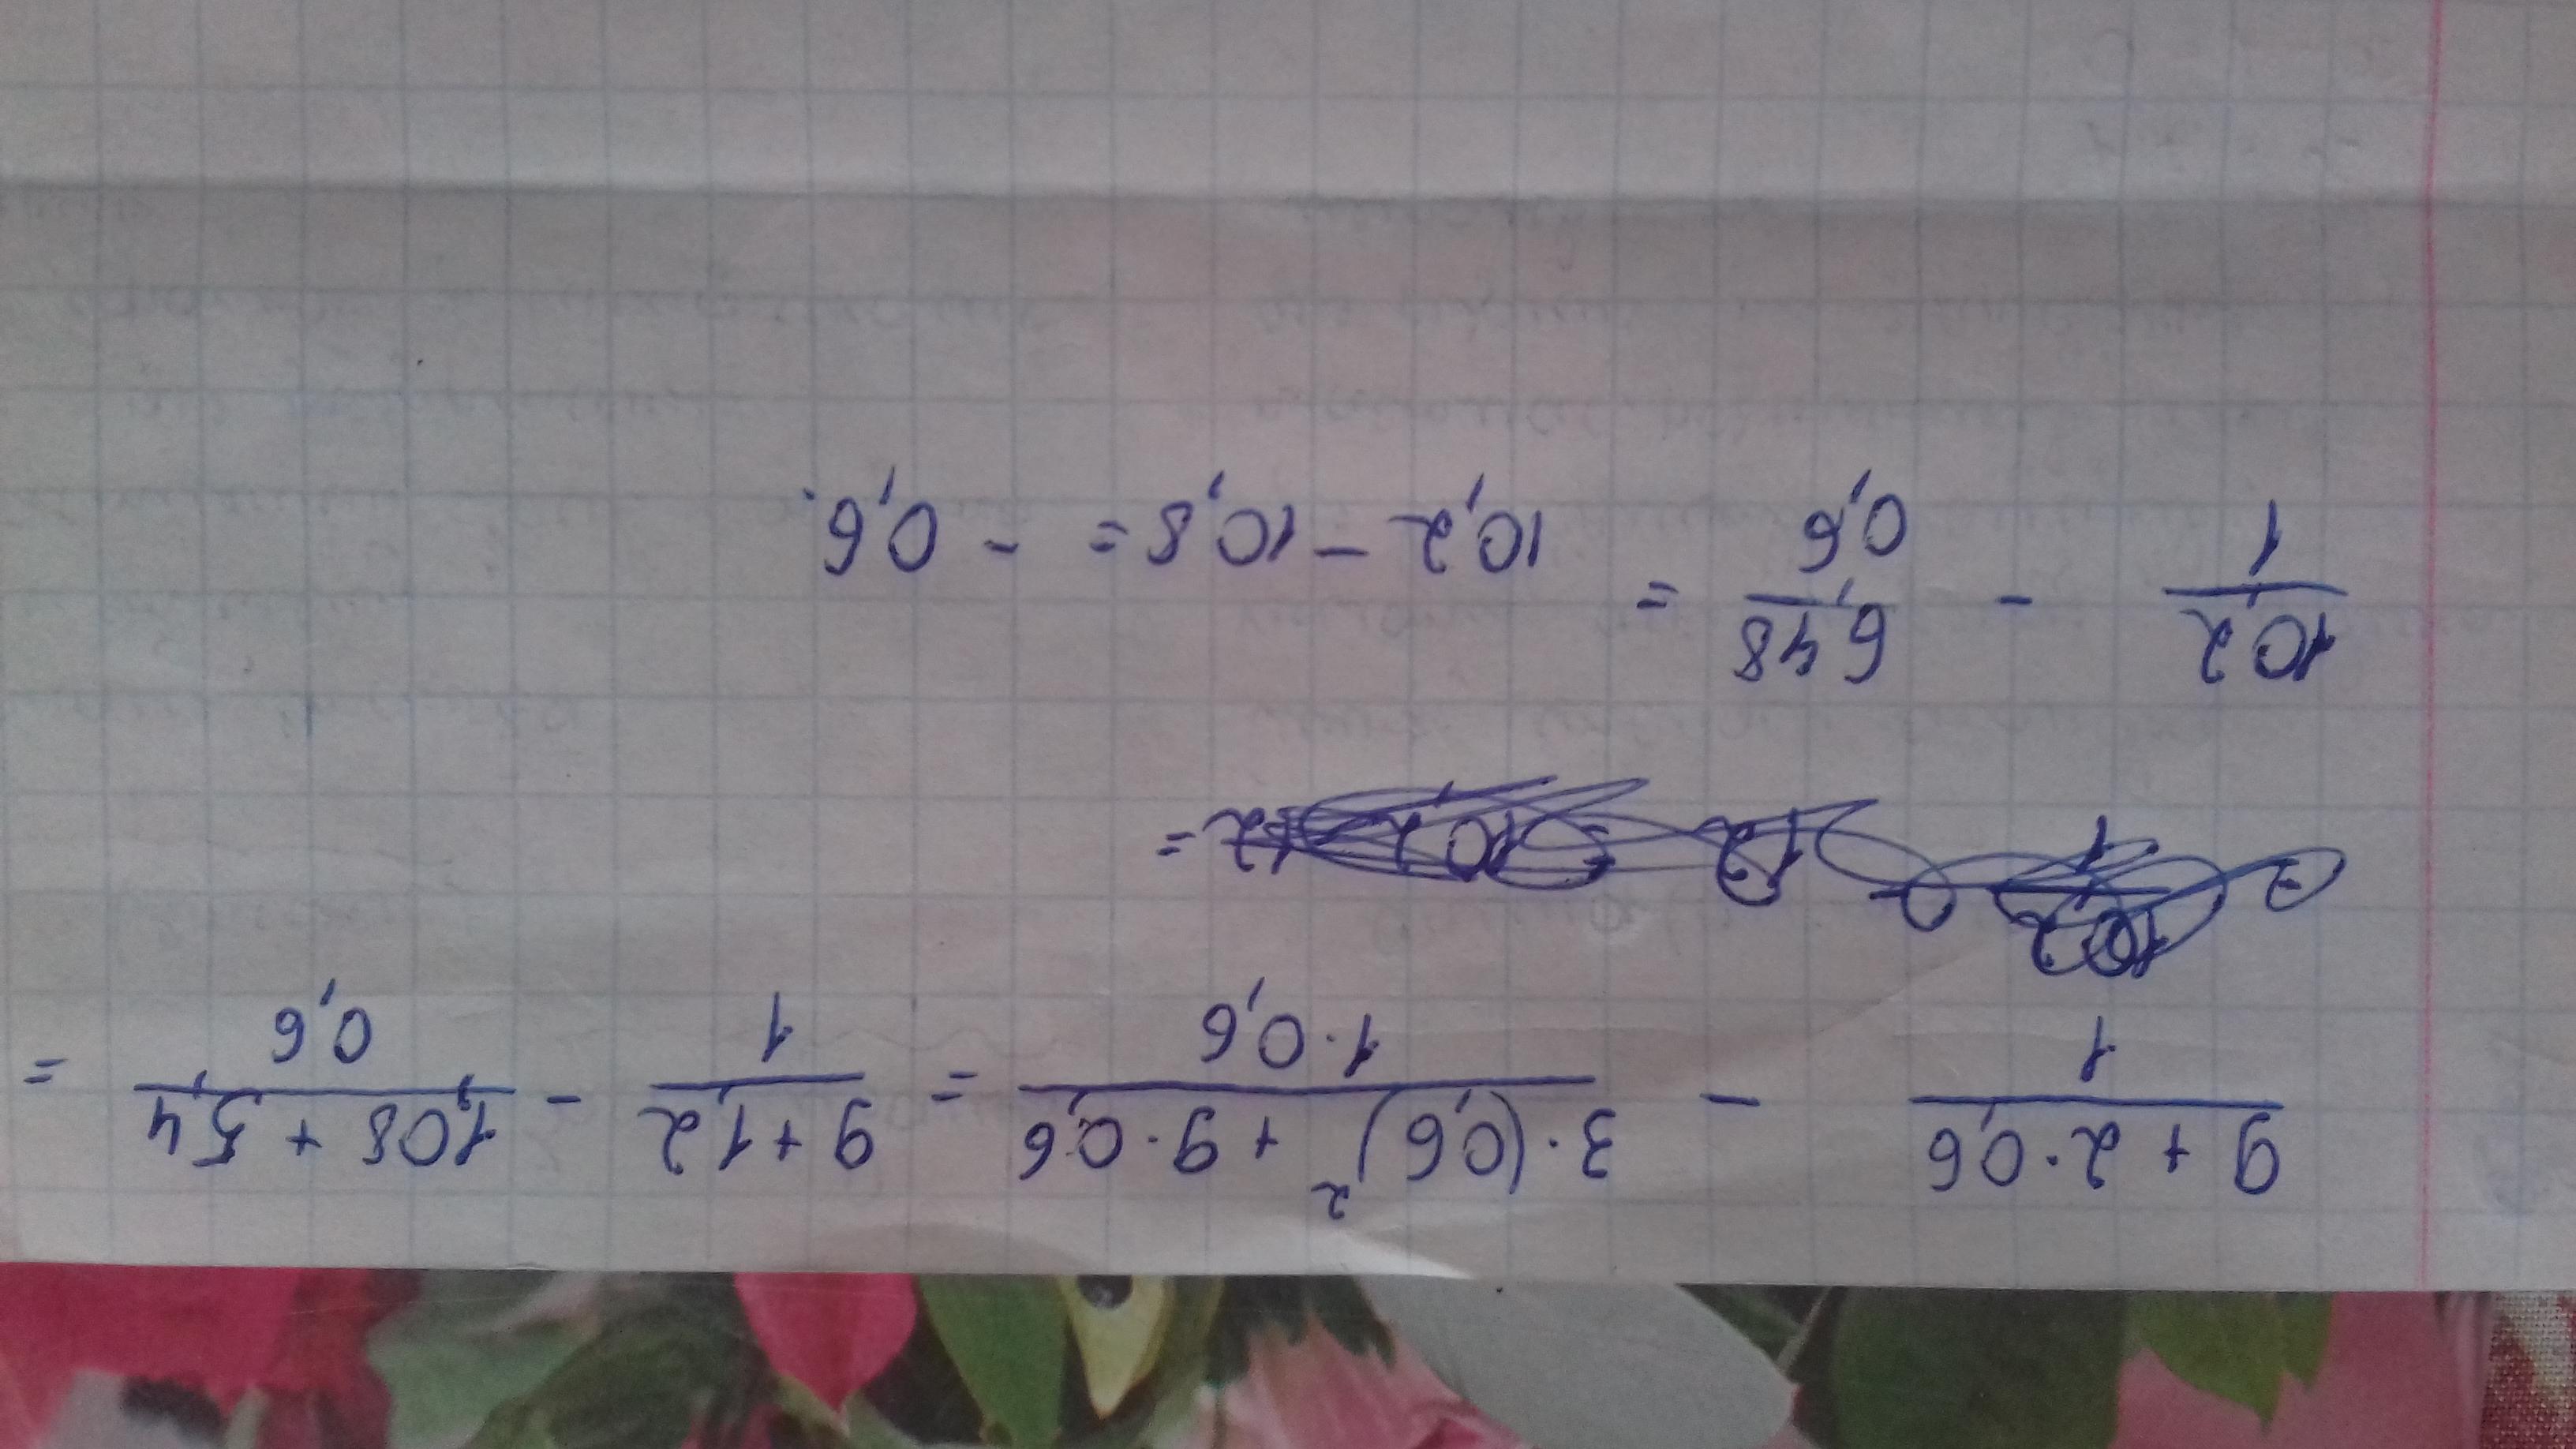 9 + 2·0,6 / 1 − 3·(0,6)² + 9·0,6 / 1·0,6 = 9 + 1,2 / 1 − 1,08 + 5,4 / 0,6 =
10,2 / 1 − 6,48 / 0,6 = 10,2 − 10,8 = − 0,6.